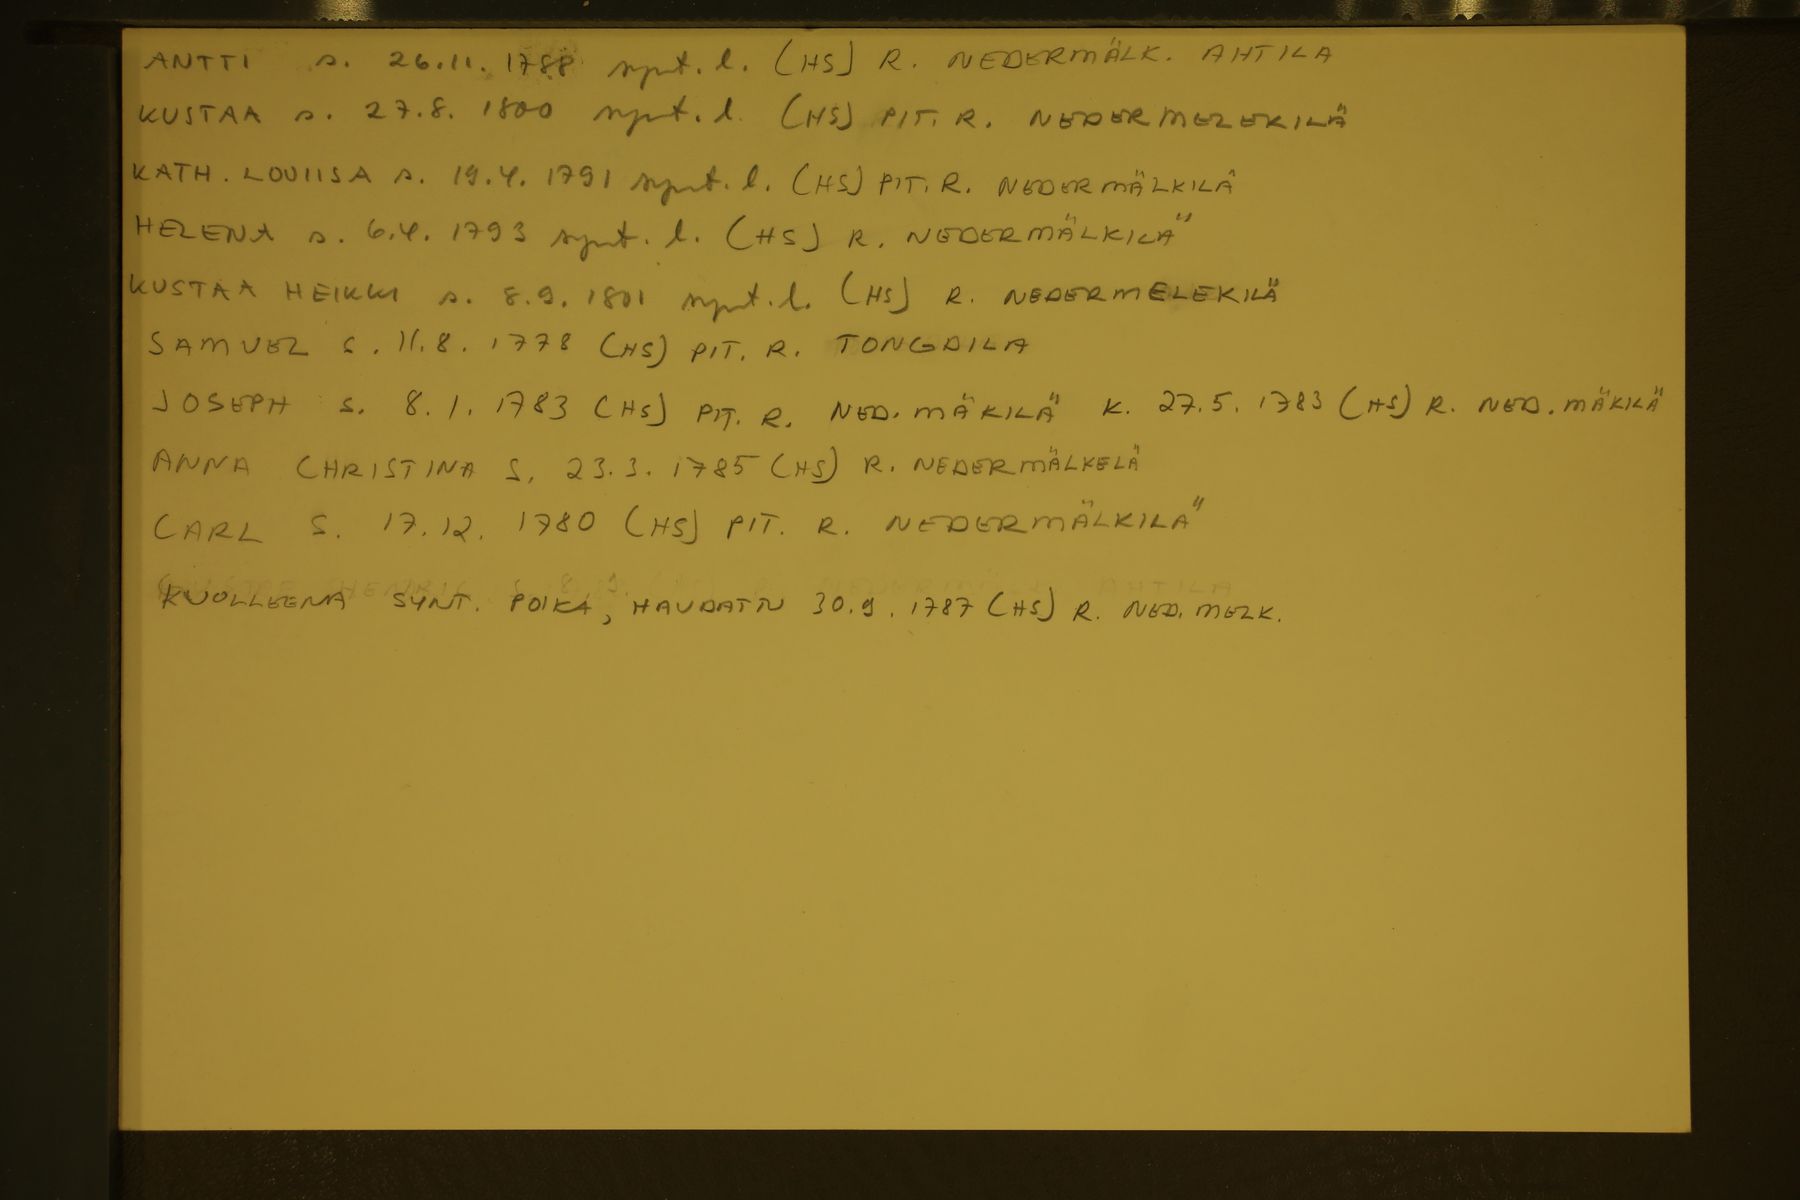 ANTTI s. 26.11. 1788 synt. l. (HS) R. NEDERMÄLK. AHTILA
KUSTAA s. 27.8. 1800 synt. l. (HS) PIT. R. NEDERMELEKILÄ
KATH. LOUIISA s. 19.4. 1791 synt. l. (HS) PIT. R. NEDERMÄLKILÄ
HELENA s. 6.4. 1793 synt. l. (HS) R. NEDERMÄLKILÄ
KUSTAA HEIKKI s. 8.9. 1801 synt. l. (HS) R. NEDERMELEKILÄ
SAMUEL S. 11.8. 1778 (HS) PIT. R. TONGDILA
JOSEPH S. 8.1. 1783 (HS) PIT. R. NED. MÄKILÄ K. 27.5. 1783 (HS) R. NED. MÄKILÄ
ANNA CHRISTINA S. 23.3. 1785 (HS) R. NEDERMÄLKELÄ
CARL S. 17.12. 1780 (HS) PIT. R. NEDERMÄLKILÄ
KUOLLEENA SYNT. POIKA, HAUDATTU 30.9. 1787 (HS) R. NED. MELK.